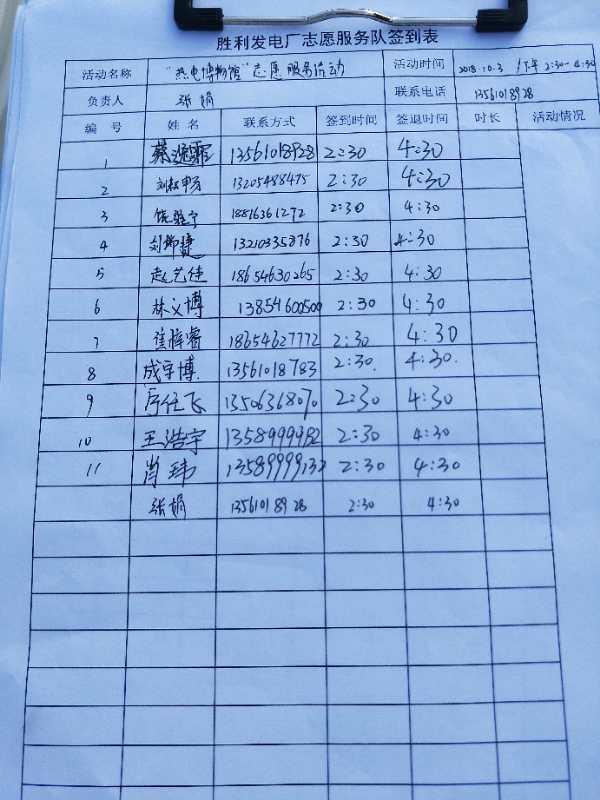 胜利发电厂志愿服务队签到表
活动名称 "热电博物馆"志愿服务活动 活动时间 2018.10.3 /下午2:30-4:30
负责人 张娟 联系电话 13561018928
编 号 姓 名 联系方式 签到时间 签退时间 时长 活动情况
1 13561018928 2:30 4:30
2 13205488475 2:30 4:30
3 18816361272 2:30 4:30
4 刘娜捷 13210335876 2:30 4:30
5 赵艺佳 18654630265 2:30 4:30
6 林义博 13854600500 2:30 4:30
7 18654627772 2:30 4:30
8 成宇博 13561018783 2:30. 4:30.
9 13506368070 2:30 4:30
10 王浩宇 2:30 4:30
11 肖玮 2:30 4:30
张娟 13561018928 2:30 4:30